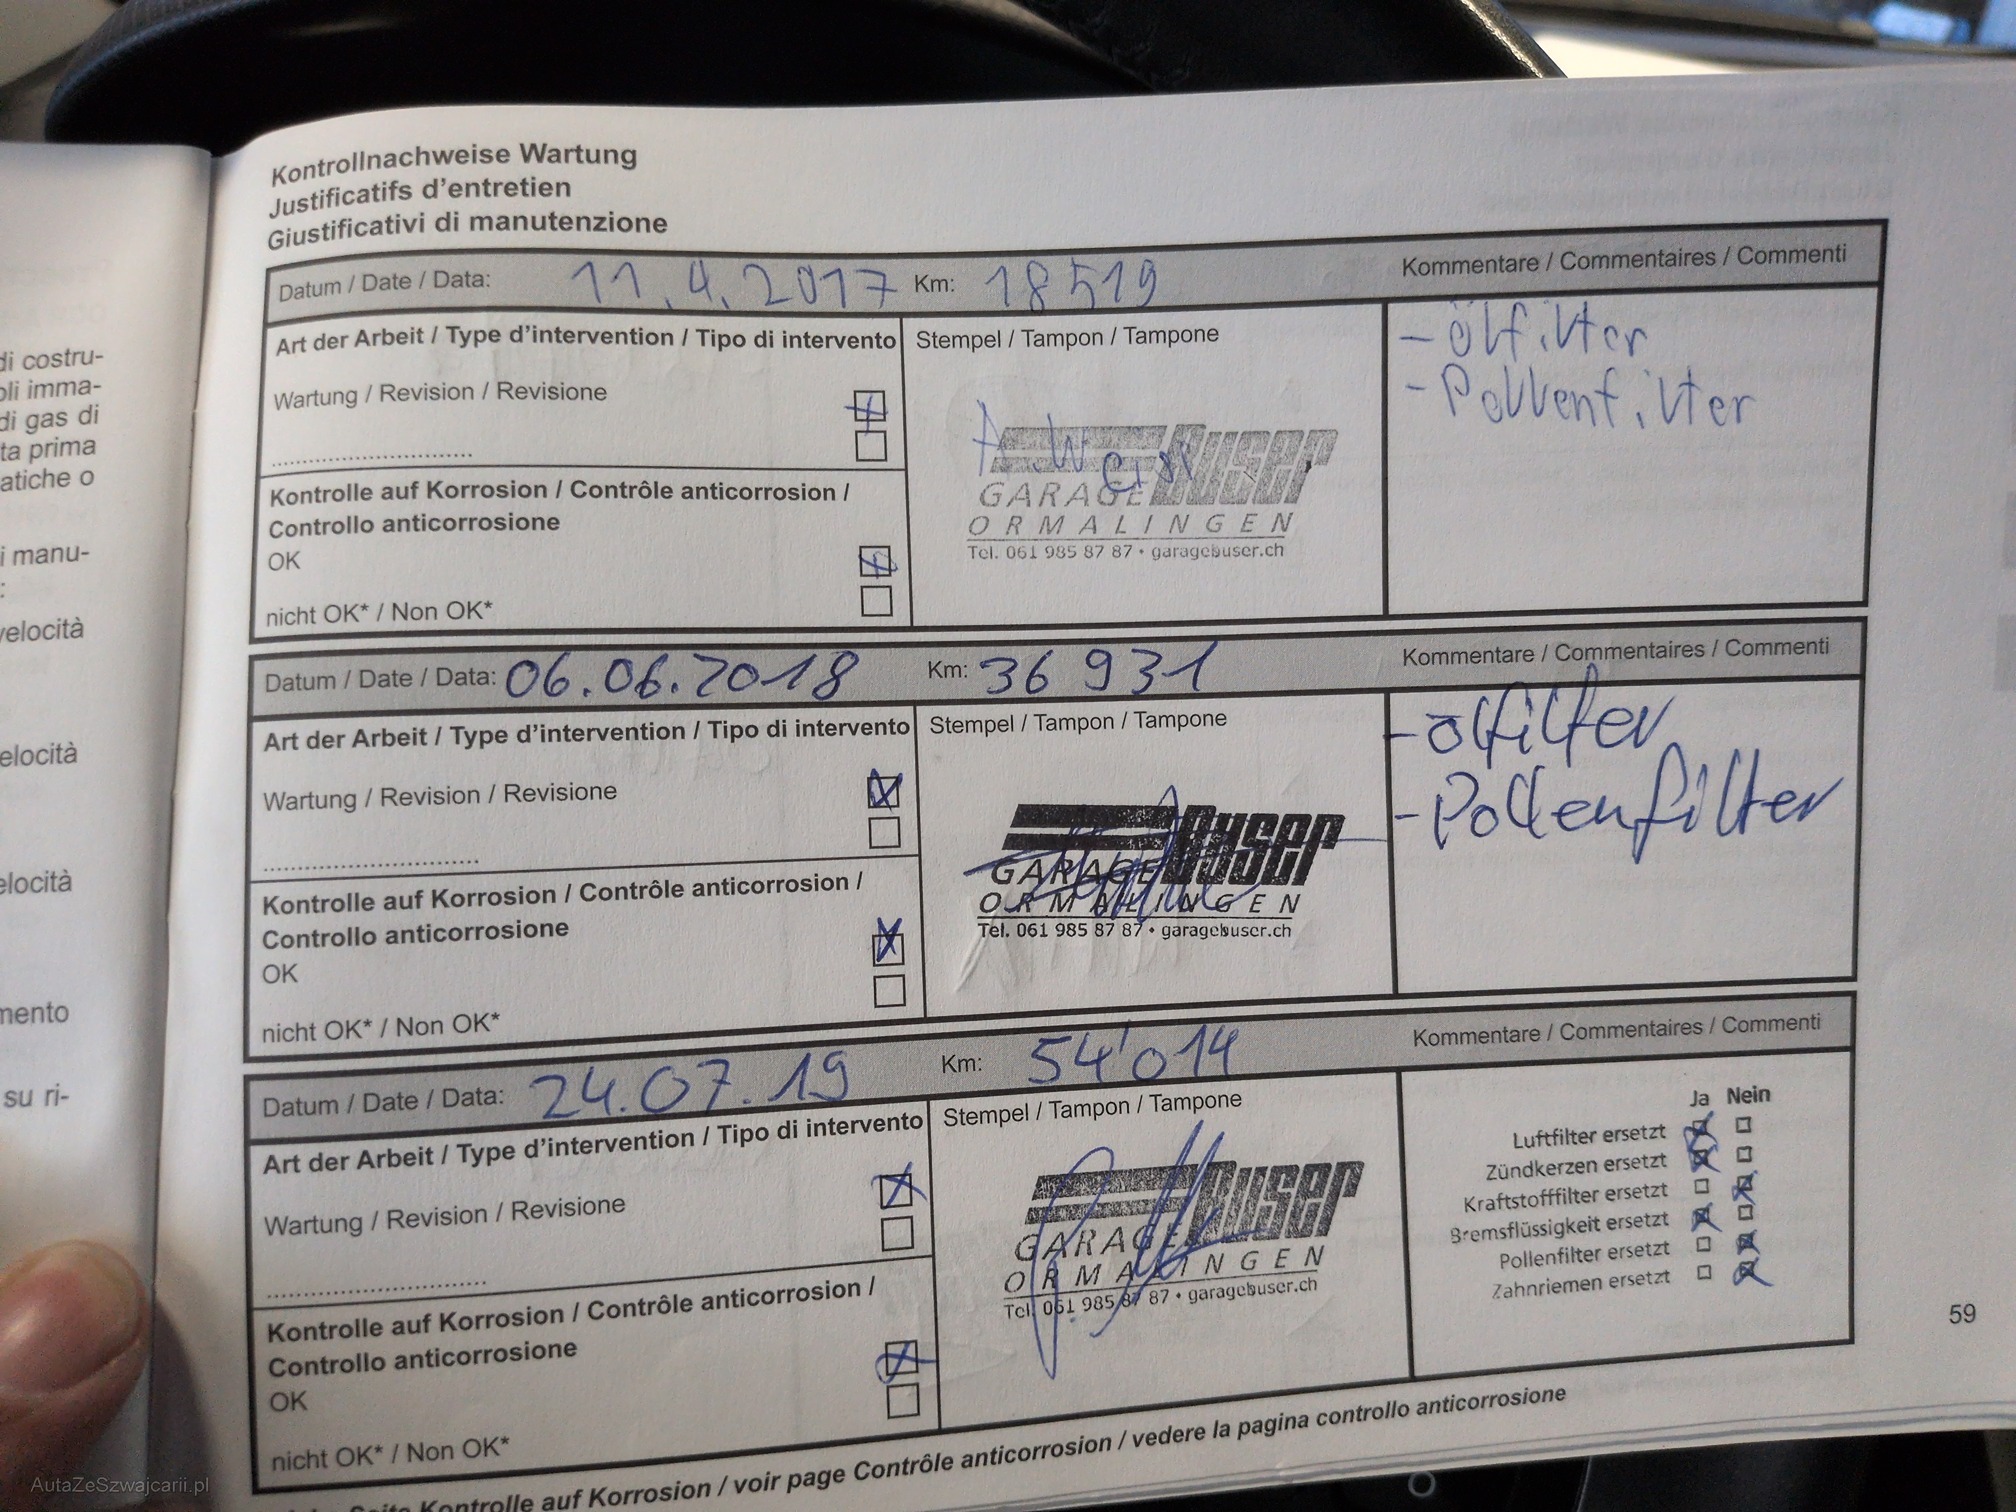 Kontrollnachweise Wartung
Justificatifs d'entretien
Giustificativi di manutenzione
Datum / Date / Data: 11.4.2017 Km: 18519 Kommentare / Commentaires / Commenti
Art der Arbeit / Type d'intervention / Tipo di intervento
Stempel / Tampon / Tampone
- ölfilter
- Pollenfilter
Wartung / Revision / Revisione
Kontrolle auf Korrosion / Contrôle anticorrosion /
Controllo anticorrosione
OK
nicht OK* / Non OK*
GARAGE Buser
ORMALINGEN
Tel. 061 985 87 87 • garagebuser.ch
Datum / Date / Data: 06.06.2018 Km: 36 931 Kommentare / Commentaires / Commenti
Art der Arbeit / Type d'intervention / Tipo di intervento
Stempel / Tampon / Tampone
- ölfilter
- Pollenfilter
Wartung / Revision / Revisione
Kontrolle auf Korrosion / Contrôle anticorrosion /
Controllo anticorrosione
OK
nicht OK* / Non OK*
GARAGE Buser
ORMALINGEN
Tel. 061 985 87 87 • garagebuser.ch
Datum / Date / Data: 24.07.19 Km: 54'014 Kommentare / Commentaires / Commenti
Art der Arbeit / Type d'intervention / Tipo di intervento
Stempel / Tampon / Tampone
Wartung / Revision / Revisione
Kontrolle auf Korrosion / Contrôle anticorrosion /
Controllo anticorrosione
OK
nicht OK* / Non OK*
GARAGE Buser
ORMALINGEN
Tel. 061 985 87 87 • garagebuser.ch
Ja Nein
Luftfilter ersetzt
Zündkerzen ersetzt
Kraftstofffilter ersetzt
Bremsflüssigkeit ersetzt
Pollenfilter ersetzt
Zahnriemen ersetzt
59
Seite Kontrolle auf Korrosion / voir page Contrôle anticorrosion / vedere la pagina controllo anticorrosione
di costru-
di gas di
ta prima
atiche o
i manu-
:
velocità
elocità
elocità
mento
su ri-
AutaZeSzwajcarii.pl